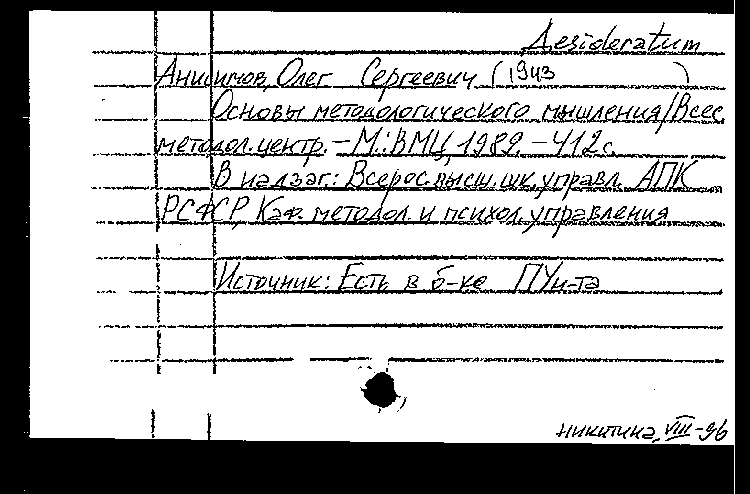 Desideratum
Анисимов, Олег Сергеевич (1943 )
Основы методологического мышления/Всес.
методол. центр. – М.: ВМЦ, 1989. – 412с.
В надзаг.: Всерос. высш. шк. управл. АПК
РСФСР, Каф. методол. и психол. управления
Источник: Есть в б-ке ПУн-та
никитина, VIII-96